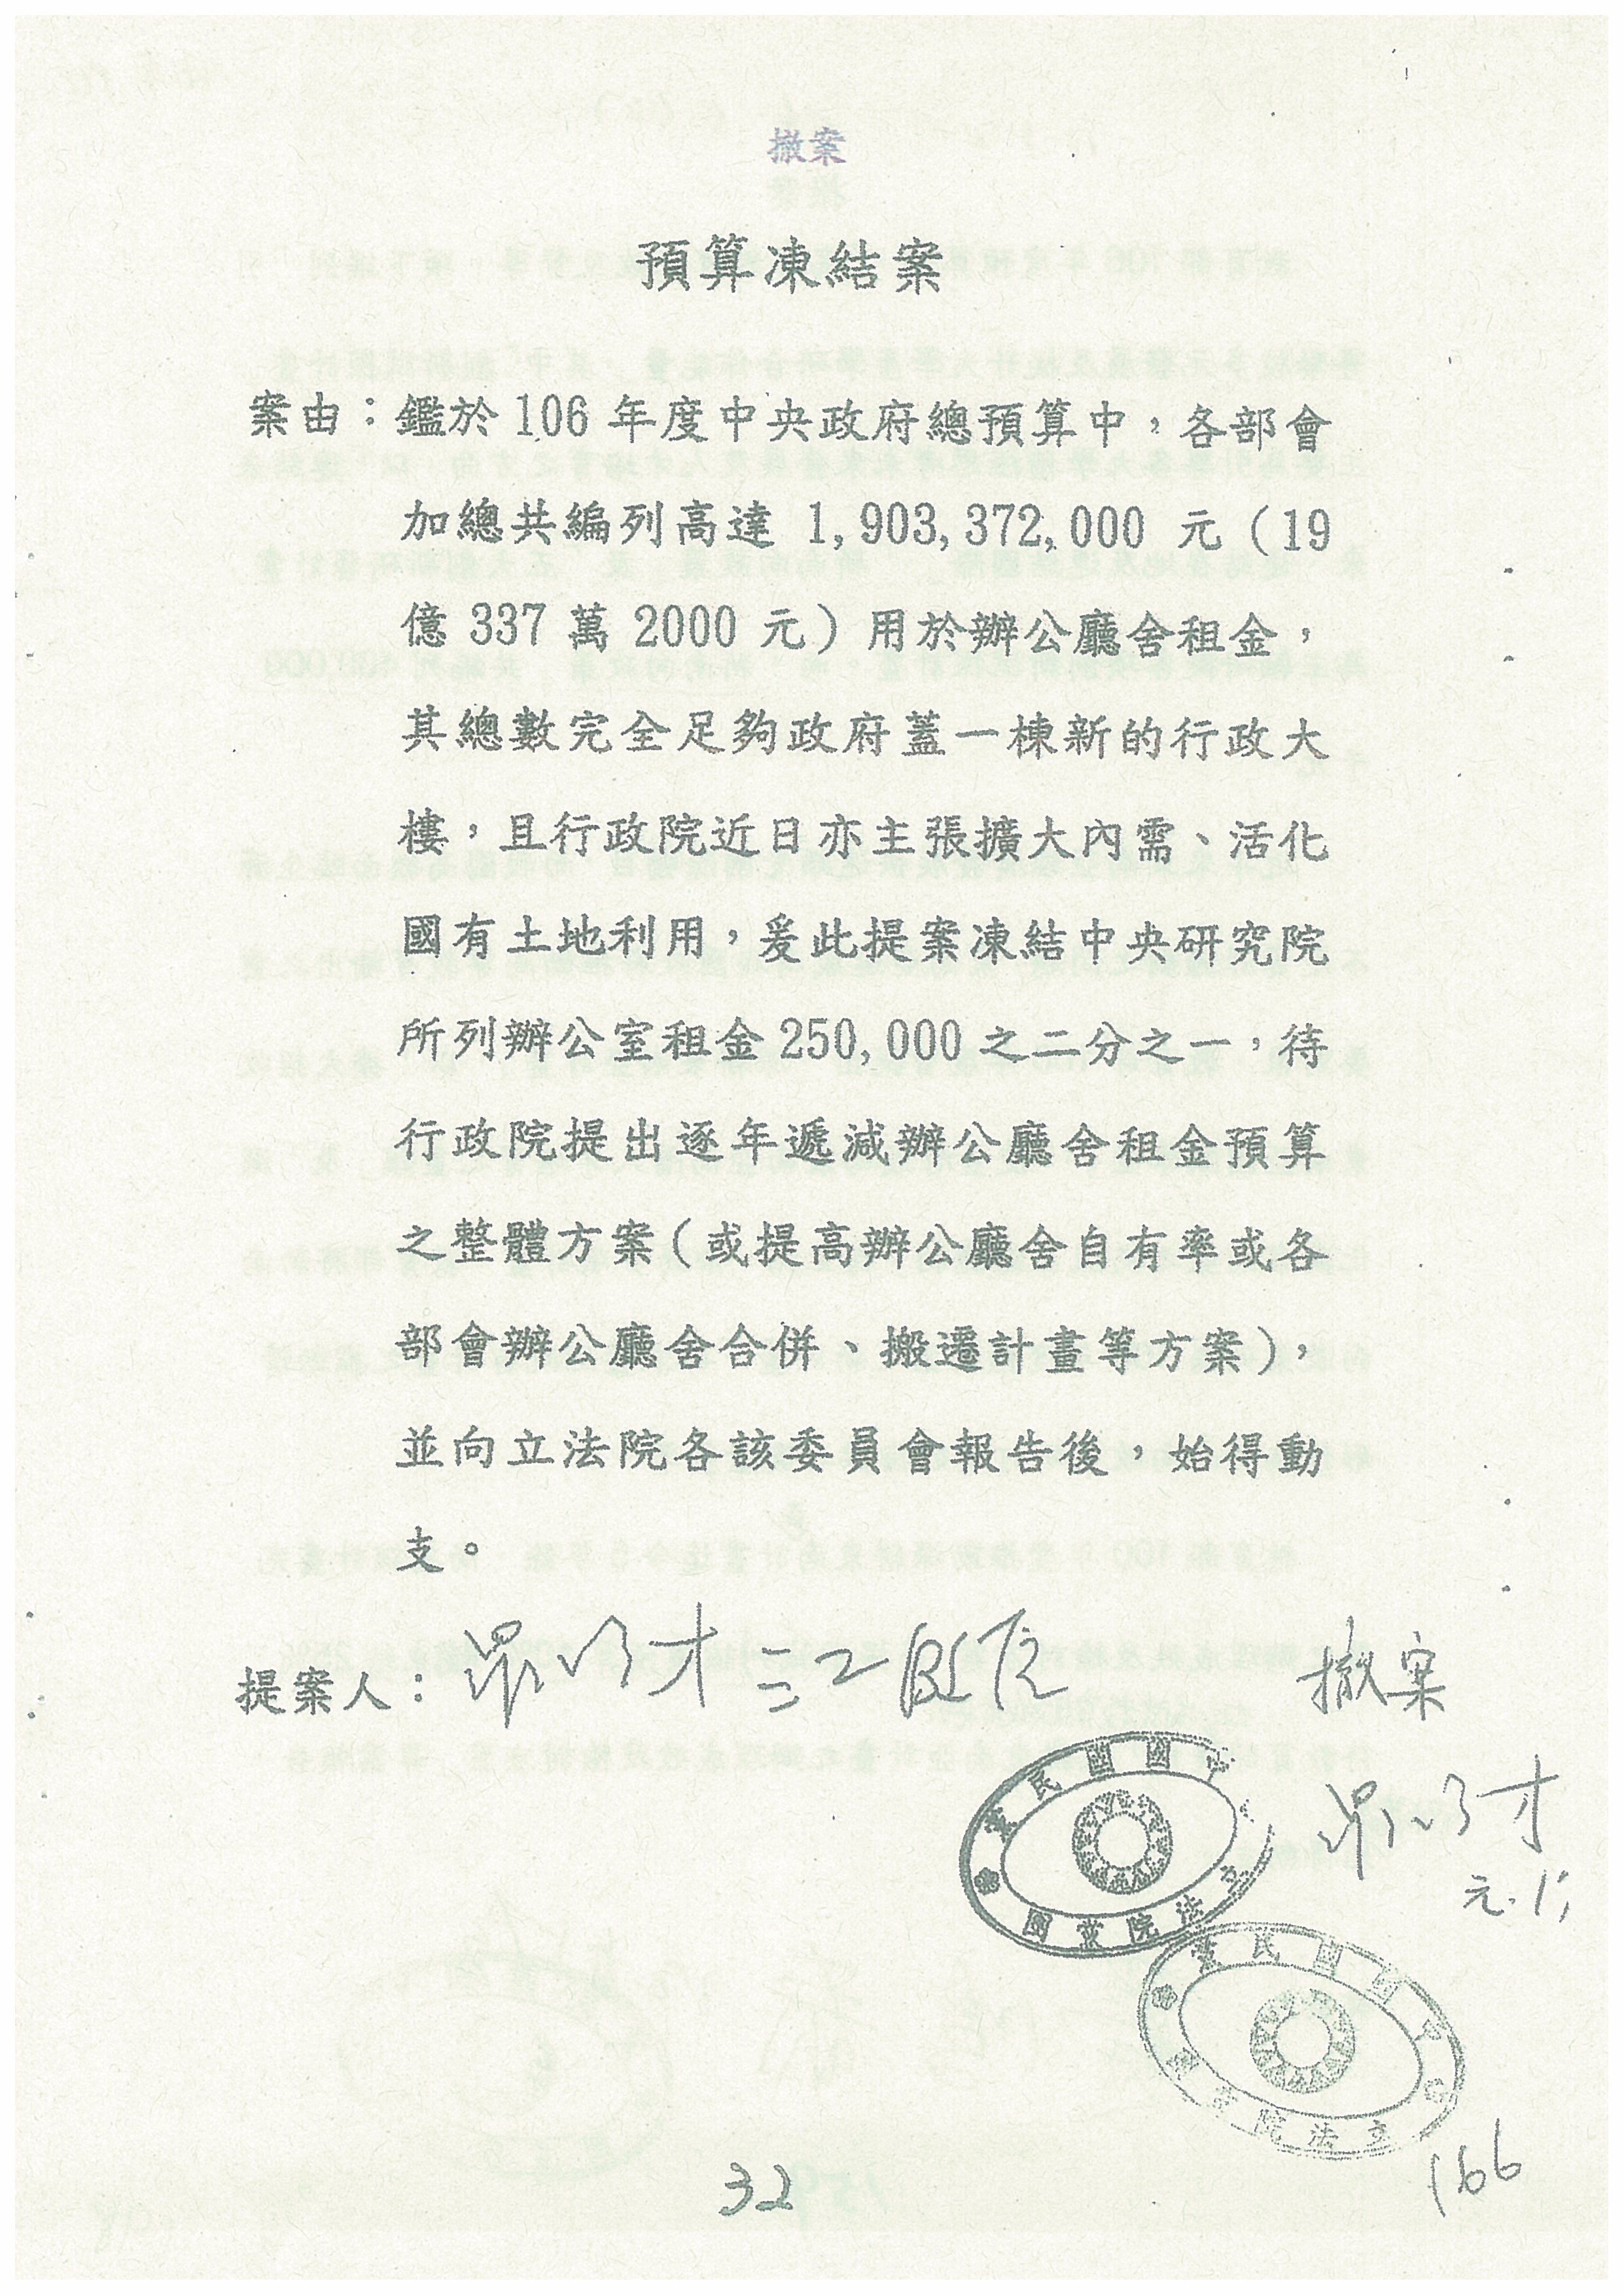 撤案
預算凍結案
案由：鑑於 106 年度中央政府總預算中，各部會
加總共編列高達 1,903,372,000 元（19
億 337 萬 2000 元）用於辦公廳舍租金，
其總數完全足夠政府蓋一棟新的行政大
樓，且行政院近日亦主張擴大內需、活化
國有土地利用，爰此提案凍結中央研究院
所列辦公室租金 250,000 之二分之一，待
行政院提出逐年遞減辦公廳舍租金預算
之整體方案（或提高辦公廳舍自有率或各
部會辦公廳舍合併、搬遷計畫等方案），
並向立法院各該委員會報告後，始得動
支。
提案人：
撤案
中國國民黨
立法院黨團
中國國民黨
立法院黨團
166
32